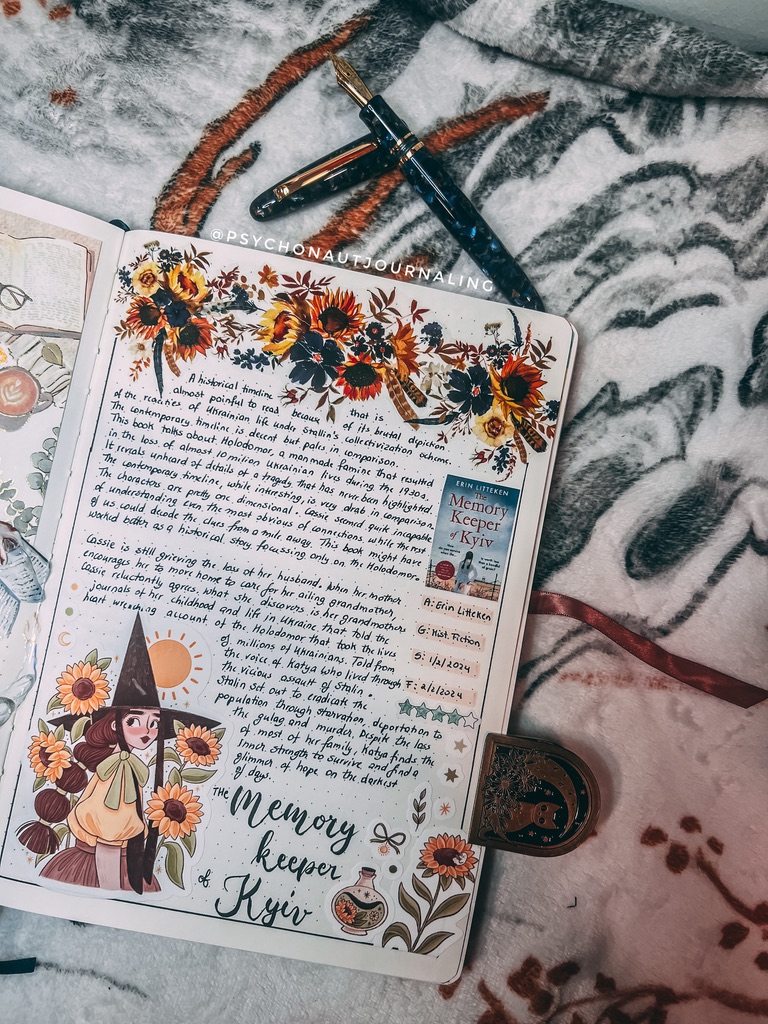 @PSYCHONAUTJOURNALING
A historical timeline that is
almost painful to read becaus of its brutal depiction
of the realities of Ukrainian life under Stallin's collectivization scheme.
The contemporary timeline is decent but pales in comparison.
This book talks about Holodomor, a man made famine that resulted
in the loss of almost 10 million Ukrainian lives during the 1930s.
It reveals unheard of details of a tragedy that has never been highlighted.
The contemporary timeline, while interesting, is very drab in comparison.
The characters are pretty one dimensional. Cassie seemed quite incapable
of understanding even the most obvious of connections, while the rest
of us could decode the clues from a mile away. This book might have
worked better as a historical story focussing only on the Holodomor.
Cassie is still grieving the loss of her husband. When her mother
encourages her to more home to care for her ailing grandmother,
Cassie reluctantly agrees. What she discovers is her grandmothers
journals of her childhood and life in Ukraine that told the
heart wrenching account of the Holodomor that took the lives
of millions of Ukrainians. Told from
the voice of Katya who lived through
the vicious assault of Stalin.
Stalin set out to eradicate the
population through starvation, deportation to
the gulag and murder. Despite the loss
of most of her family, Katya finds the
inner strength to survive and find a
glimmer of hope on the darkest
of days.
ERIN LITTEKEN
The
Memory
Keeper
of Kyiv
A: Erin Litteken
G: Hist. Fiction
S: 1/2/2024
F: 2/2/2024
THE Memory
keeper
of Kyiv